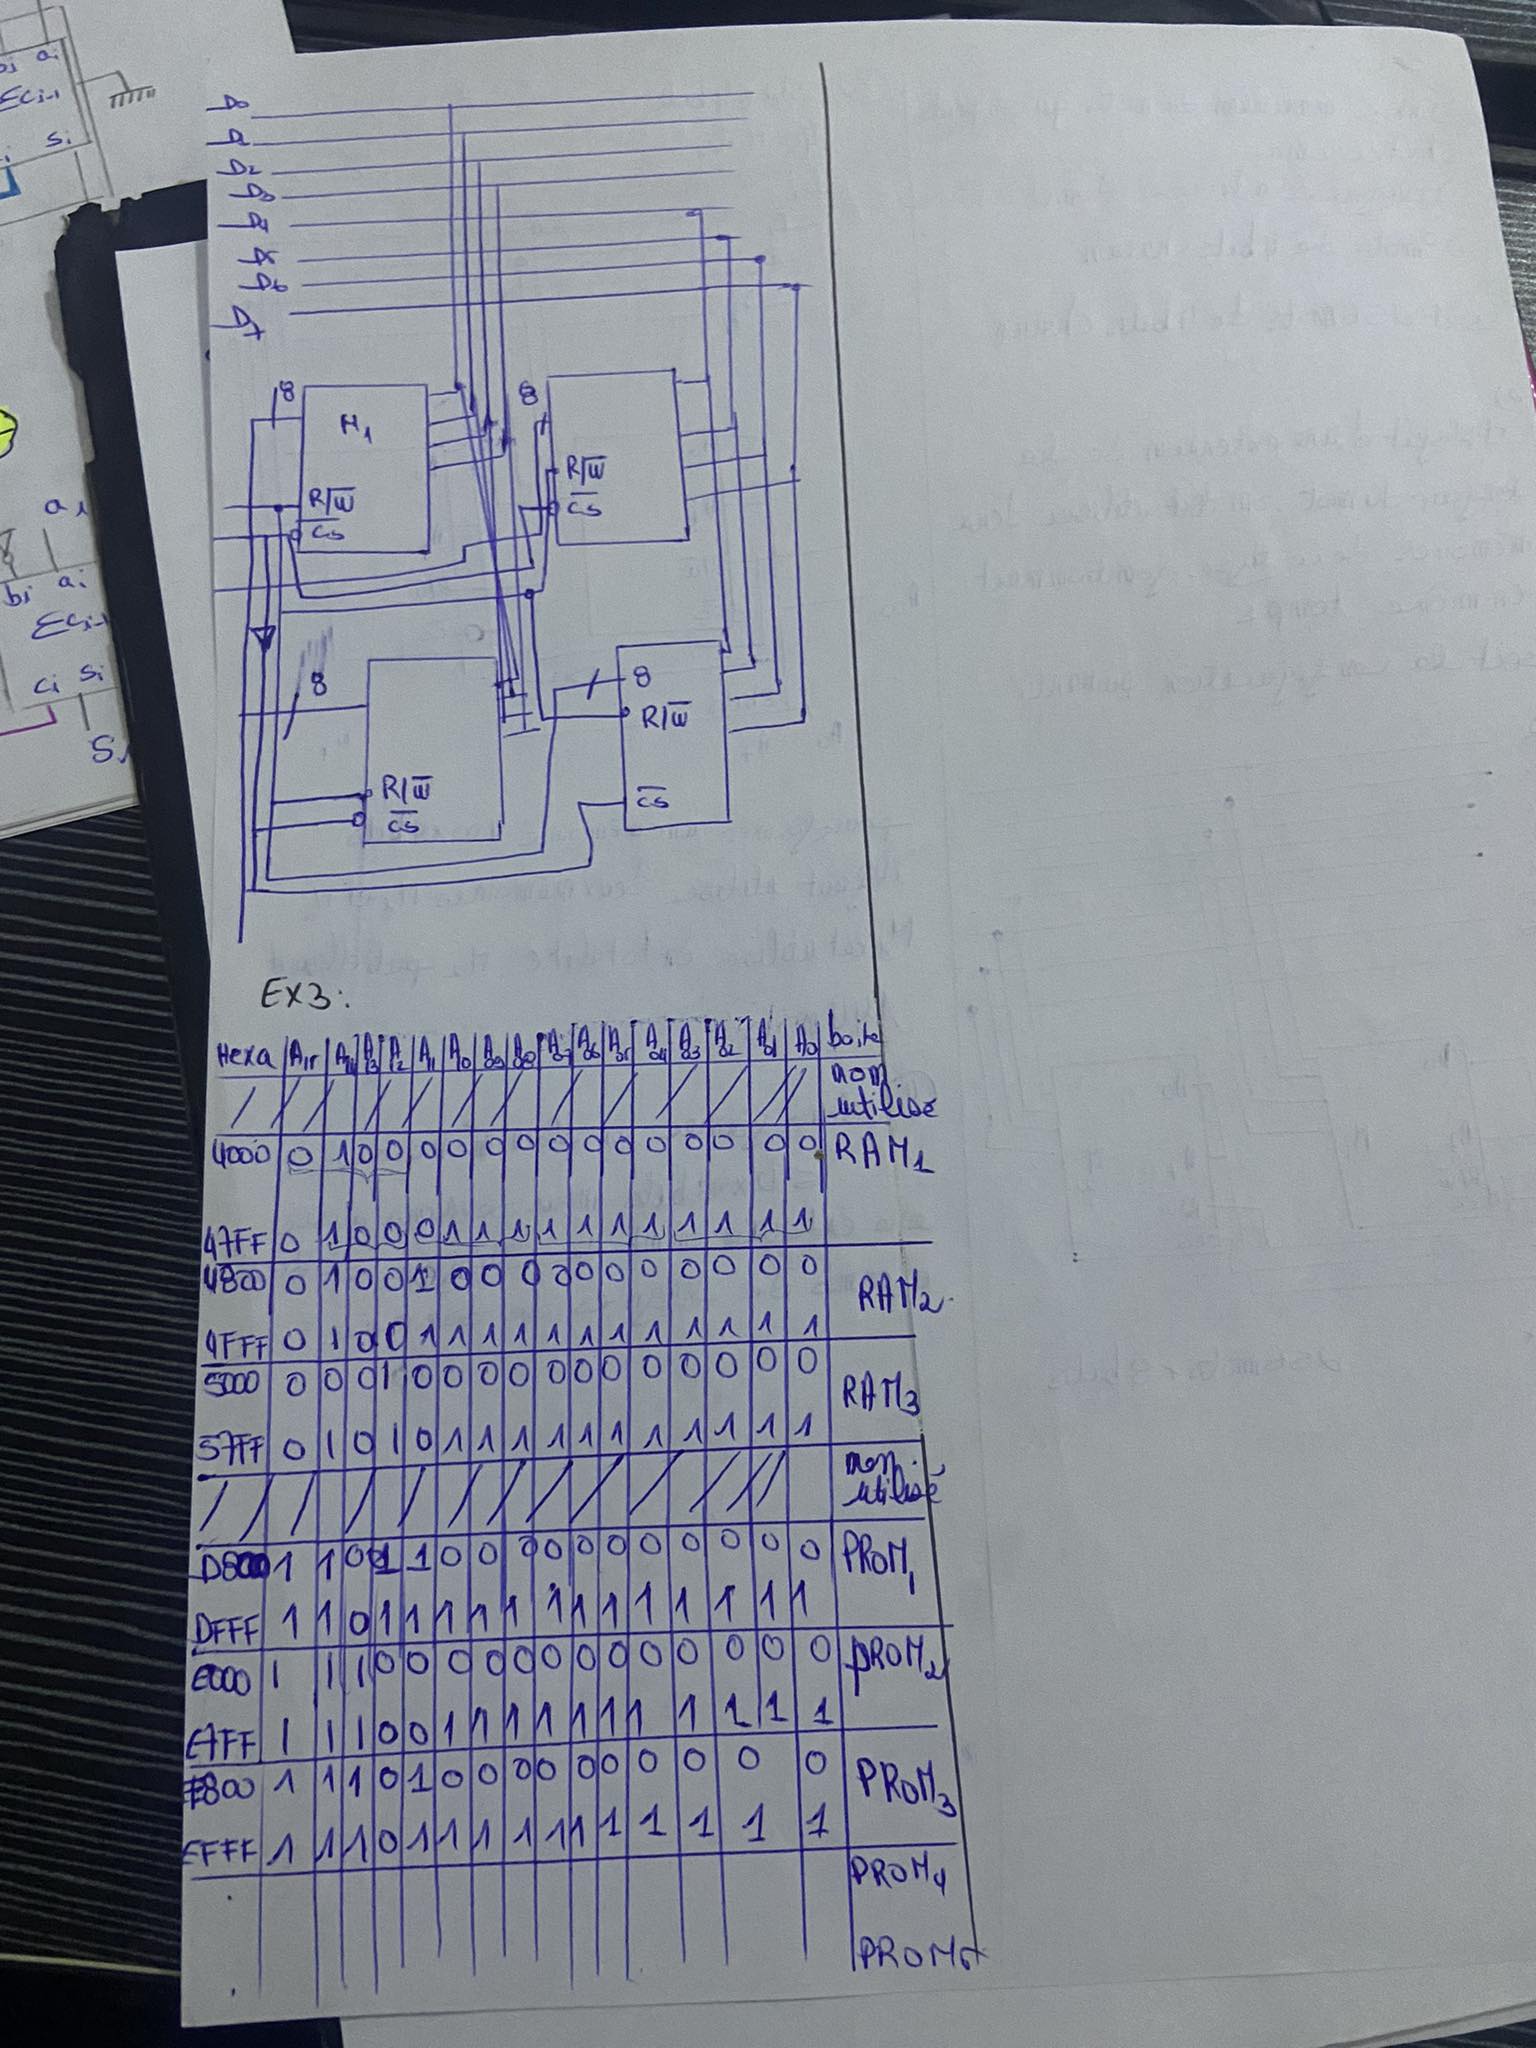 D0
D
D2
D3
D4
D5
D6
D7
8
M1
R/W̅
C̅S̅
8
R/W̅
C̅S̅
8
R/W̅
C̅S̅
8
R/W̅
C̅S̅
EX3:
Hexa A15 A14 A13 A12 A11 A10 A09 A08 A07 A06 A05 A04 A03 A02 A01 A0 boite
non utilisé
4000 0 1 0 0 0 0 0 0 0 0 0 0 0 0 0 0 RAM1
47FF 0 1 0 0 0 1 1 1 1 1 1 1 1 1 1 1
4800 0 1 0 0 1 0 0 0 0 0 0 0 0 0 0 0 RAM2
4FFF 0 1 0 0 1 1 1 1 1 1 1 1 1 1 1 1
5000 0 0 0 1 0 0 0 0 0 0 0 0 0 0 0 0 RAM3
57FF 0 1 0 1 0 1 1 1 1 1 1 1 1 1 1 1
non utilisé
D800 1 1 0 1 1 0 0 0 0 0 0 0 0 0 0 0 PROM1
DFFF 1 1 0 1 1 1 1 1 1 1 1 1 1 1 1 1
E000 1 1 1 0 0 0 0 0 0 0 0 0 0 0 0 0 PROM2
E7FF 1 1 1 0 0 1 1 1 1 1 1 1 1 1 1 1
E800 1 1 1 0 1 0 0 0 0 0 0 0 0 0 0 PROM3
EFFF 1 1 1 0 1 1 1 1 1 1 1 1 1 1 1
PROM4
PROM5
ai
ΣCi-1
Si
a1
bi ai
ΣCi-1
Ci Si
S1